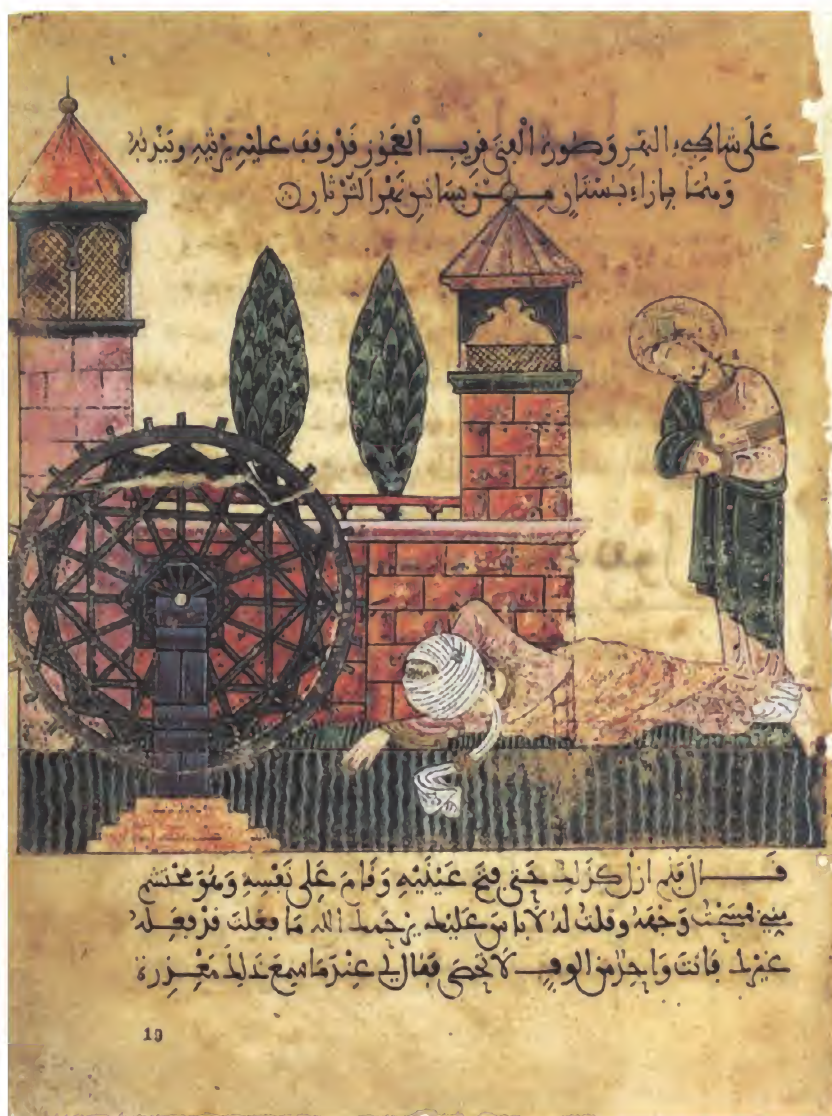 عَلَى شاطِىء النهر وَصُورة الْفتى قريب الْعَجُوز قَدْ وقف عليْهِ يَرْثيهِ ويَنْدبُهُ
وَهُمَا بِإزاءِ بُسْتَانٍ مِن بسَاتين نهْر الثَّرْثار
قَال فلم ازلْ كَذلك حَتى فتح عَيْنَيْهِ وَقَامَ عَلى نَفْسِهِ وَهُوَ مُحْتشم
مني فمَسَحْتُ وَجْهَهُ وقلتُ لهُ لَا باسَ عَليْكَ يرْحَمكَ الله مَا فعَلتَ قدْ فعَلهُ
غيْرك فانتَ وَاحِدٌ من الوفٍ لَا تحْصَى فقال لِي عنْدمَا سَمِعَ ذلك مَعْذِرة
19